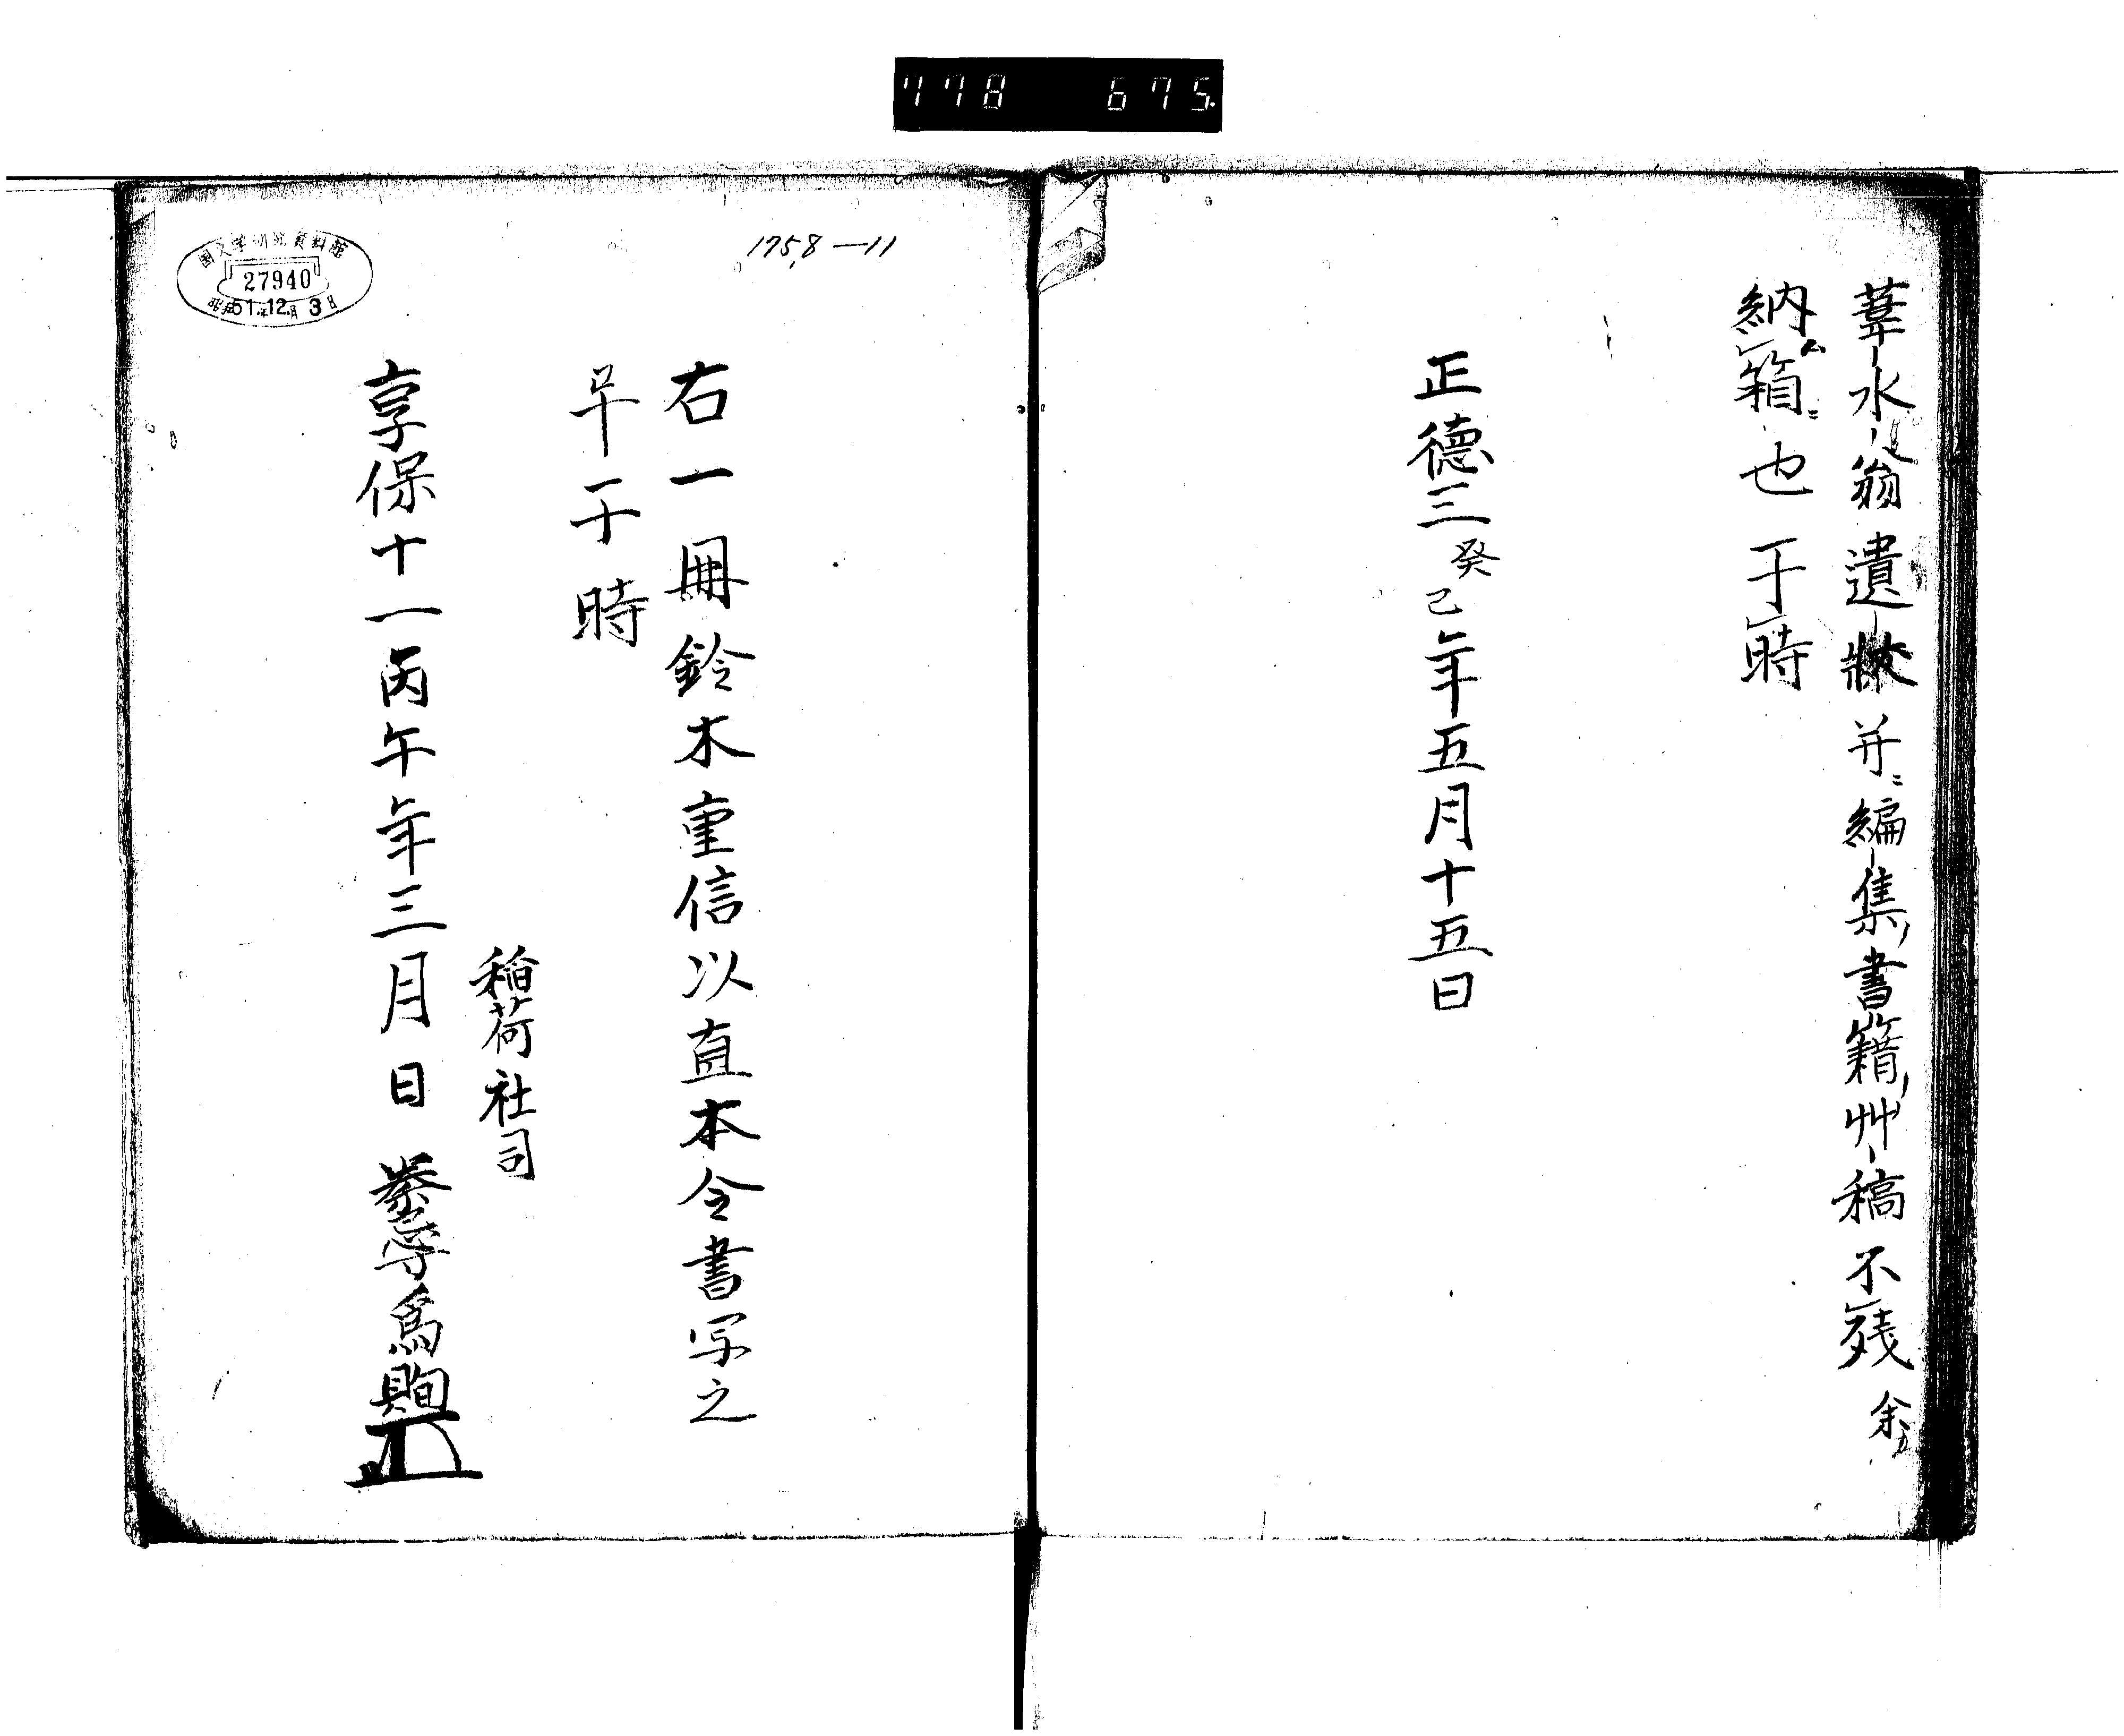 778 675
葦水翁遺牀并ニ編集書籍艸稿不残余
納ム箱ニ也于時
正徳三癸巳年五月十五日
175.8-11
国文学研究資料館
27940
昭和51年12月3日
右一冊鈴木重信以直本令書写之
早于時
稲荷社司
享保十一丙午年三月日 秦